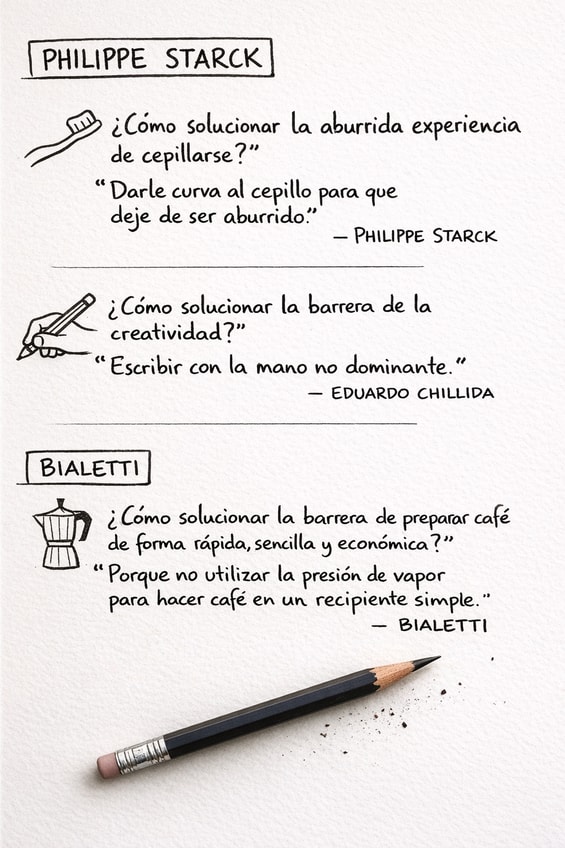 PHILIPPE STARCK
¿Cómo solucionar la aburrida experiencia
de cepillarse?”
“Darle curva al cepillo para que
deje de ser aburrido.”
— PHILIPPE STARCK
¿Cómo solucionar la barrera de la
creatividad?”
“Escribir con la mano no dominante.”
— EDUARDO CHILLIDA
BIALETTI
¿Cómo solucionar la barrera de preparar café
de forma rápida, sencilla y económica?”
“Porque no utilizar la presión de vapor
para hacer café en un recipiente simple.”
— BIALETTI